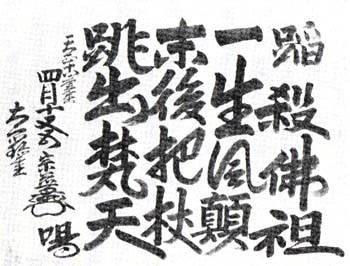 蹈殺佛祖
一生風顛
末後把杖
跳出梵天
喝
四月